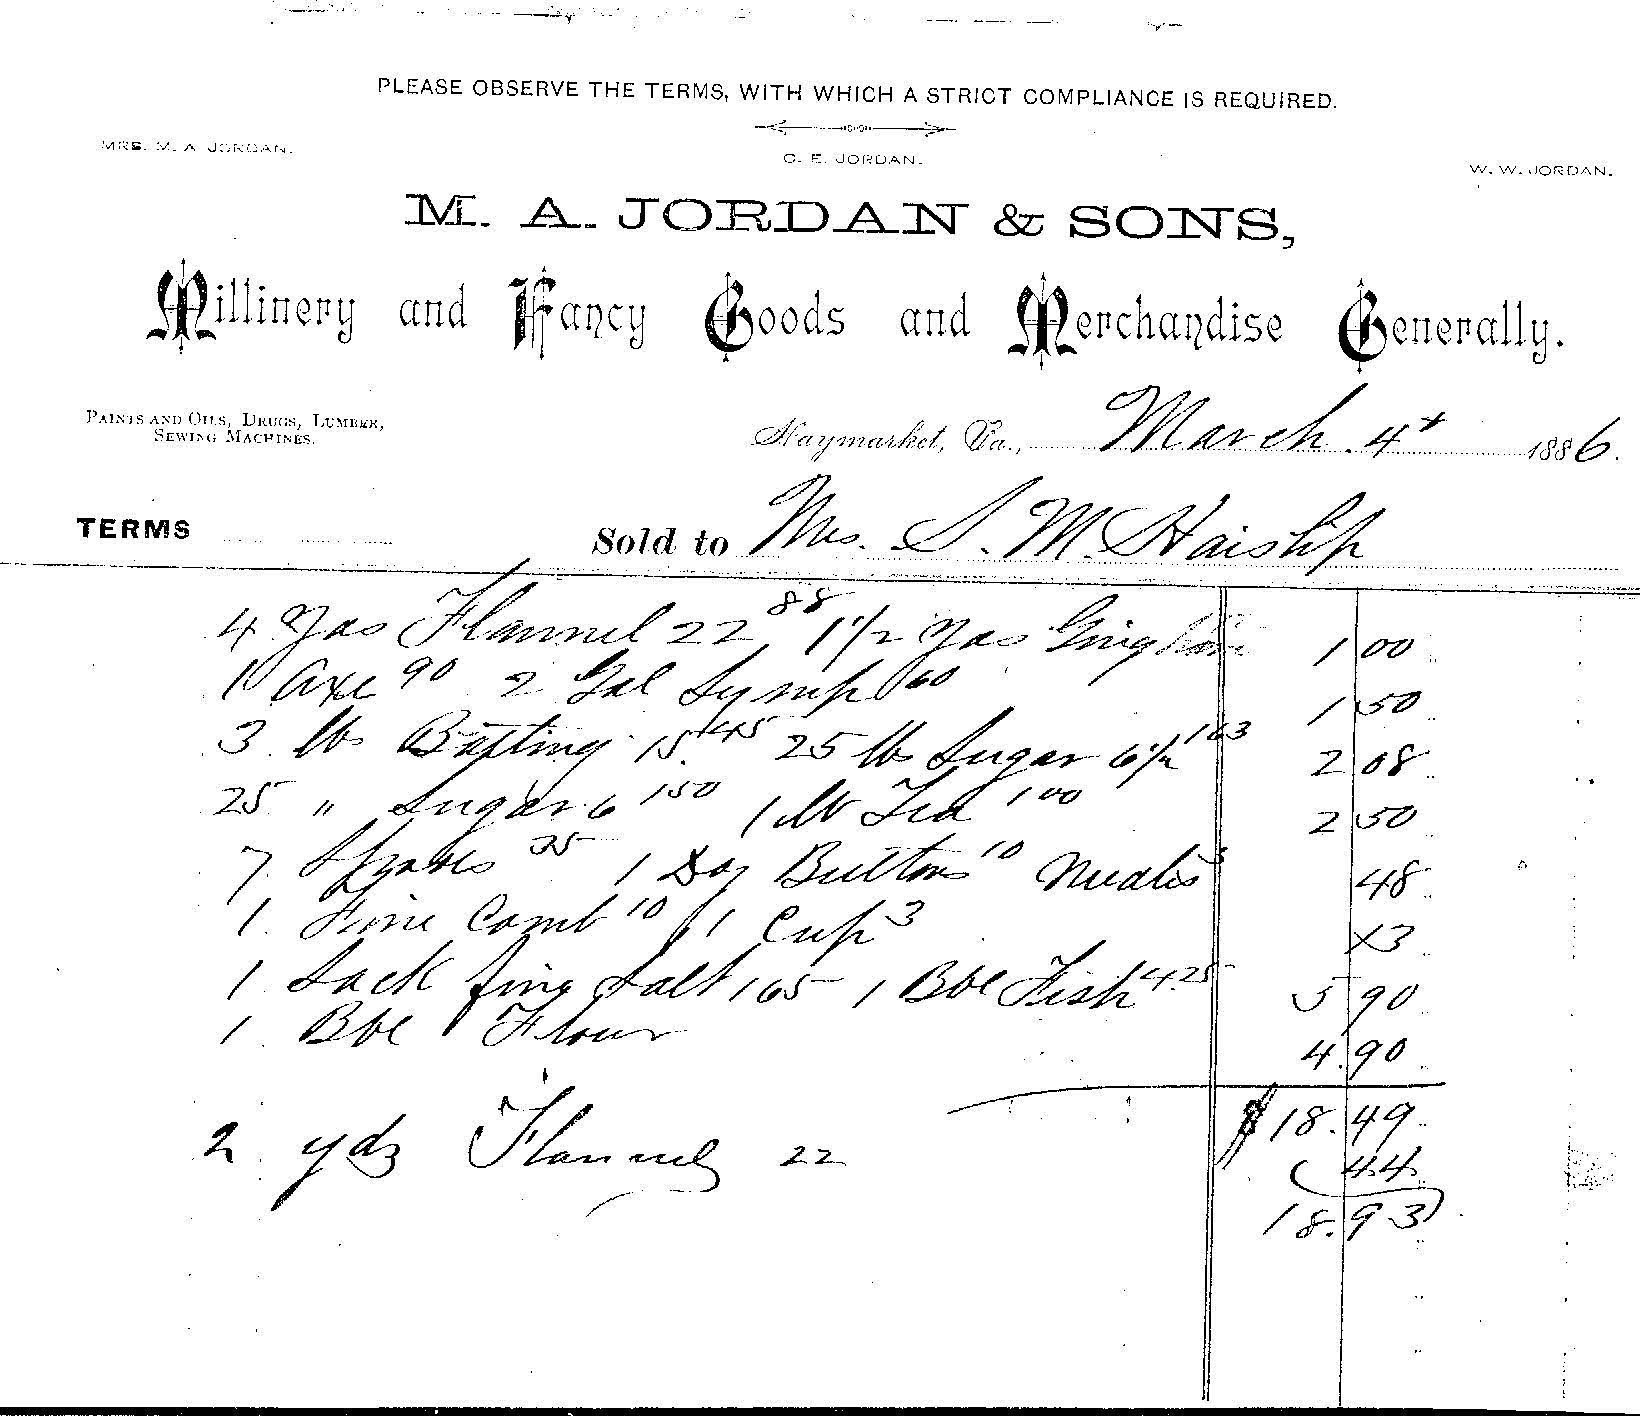 PLEASE OBSERVE THE TERMS, WITH WHICH A STRICT COMPLIANCE IS REQUIRED.
MRS. M. A. JORDAN. C. E. JORDAN. W. W. JORDAN.
M. A. JORDAN & SONS,
Millinery and Fancy Goods and Merchandise Generally.
PAINTS AND OILS, DRUGS, LUMBER,
SEWING MACHINES.
Haymarket, Va., March 4th 1886.
TERMS Sold to Mrs. S. M. Haislip
4 Yds Flannel 22 88 1 1/2 Yds Gingham 1 00
1 Axe 90 2 Gal Syrup 60 1 50
3 lbs Batting 15 45 25 lbs Sugar 6 1/2 1 63 2 08
25 " Sugar 6 1 50 1 lb Tea 1 00 2 50
7 35 1 Doz Buttons 10 Needles 3 48
1 Fine Comb 10 1 Cup 3 X3
1 Sack fine Salt 1 65 1 Bbl Fish 4.25 5 90
1 Bbl Flour 4.90
$18.49
2 yds Flannel 22 44
18.93